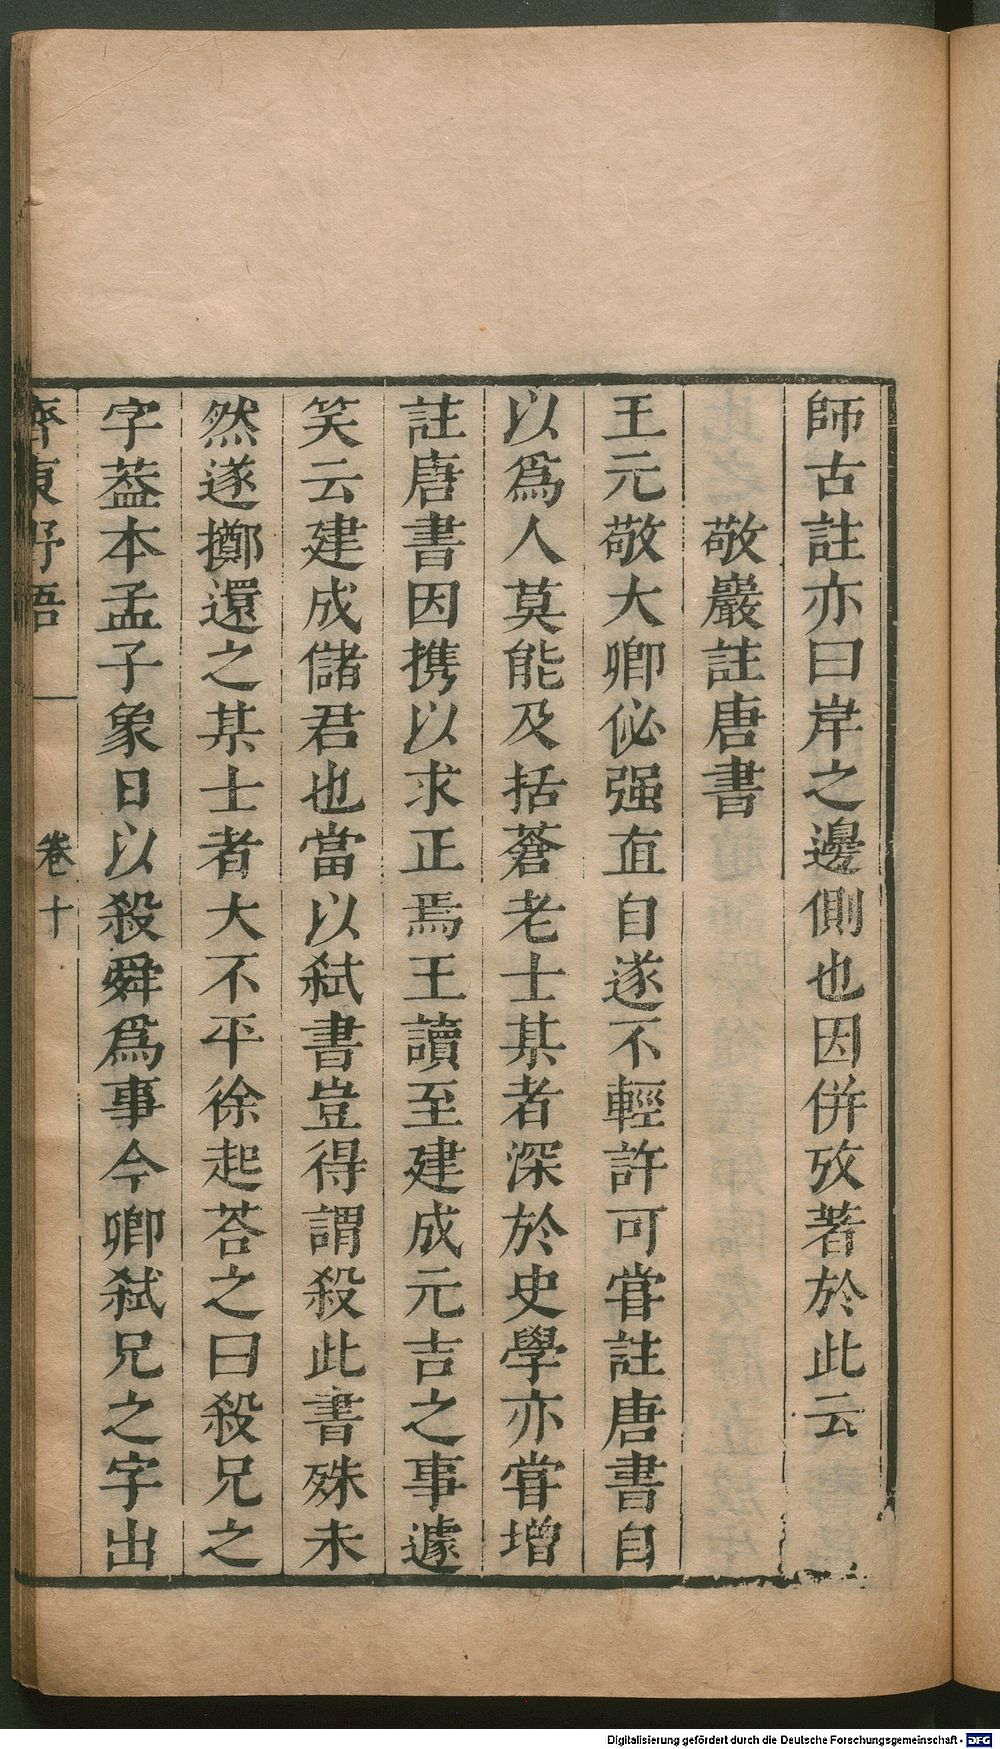 師古註亦曰岸之邊側也因併攷著於此云
敬巖註唐書
王元敬大卿佖强直自遂不輕許可嘗註唐書自
以爲人莫能及括蒼老士某者深於史學亦嘗增
註唐書因携以求正焉王讀至建成元吉之事遽
笑云建成儲君也當以弑書豈得謂殺此書殊未
然遂擲還之某士者大不平徐起荅之曰殺兄之
字葢本孟子象日以殺舜爲事今卿弑兄之字出
齊東野語 卷十
Digitalisierung gefördert durch die Deutsche Forschungsgemeinschaft - DFG